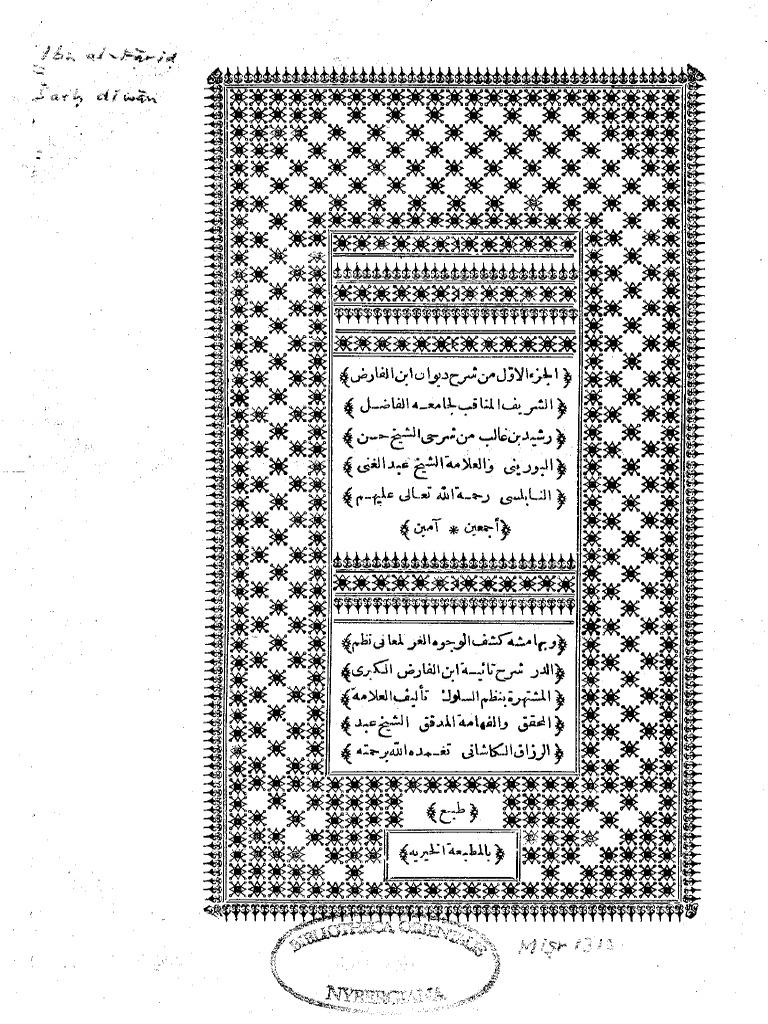 Ibn al-Fāriḍ
Šarḥ dīwān
﴿الجزء الاوّل من شرح ديوان ابن الفارض﴾
﴿الشريف المناقب لجامعه الفاضل﴾
﴿رشيد بن غالب من شرحى الشيخ حسن﴾
﴿البورينى والعلامة الشيخ عبد الغنى﴾
﴿النابلسى رحمة الله تعالى عليهم﴾
﴿أجمعين * آمين﴾
﴿وبهامشه كشف الوجوه الغر لمعانى نظم﴾
﴿الدر شرح تائية ابن الفارض الكبرى﴾
﴿المشتهرة بنظم السلوك تأليف العلامة﴾
﴿المحقق والفهامة المدقق الشيخ عبد﴾
﴿الرزاق الكاشانى تغمده الله برحمته﴾
﴿طبع﴾
﴿بالمطبعة الخيريه﴾
BIBLIOTHECA ORIENTALIS
NYBERGIANA
Miṣr